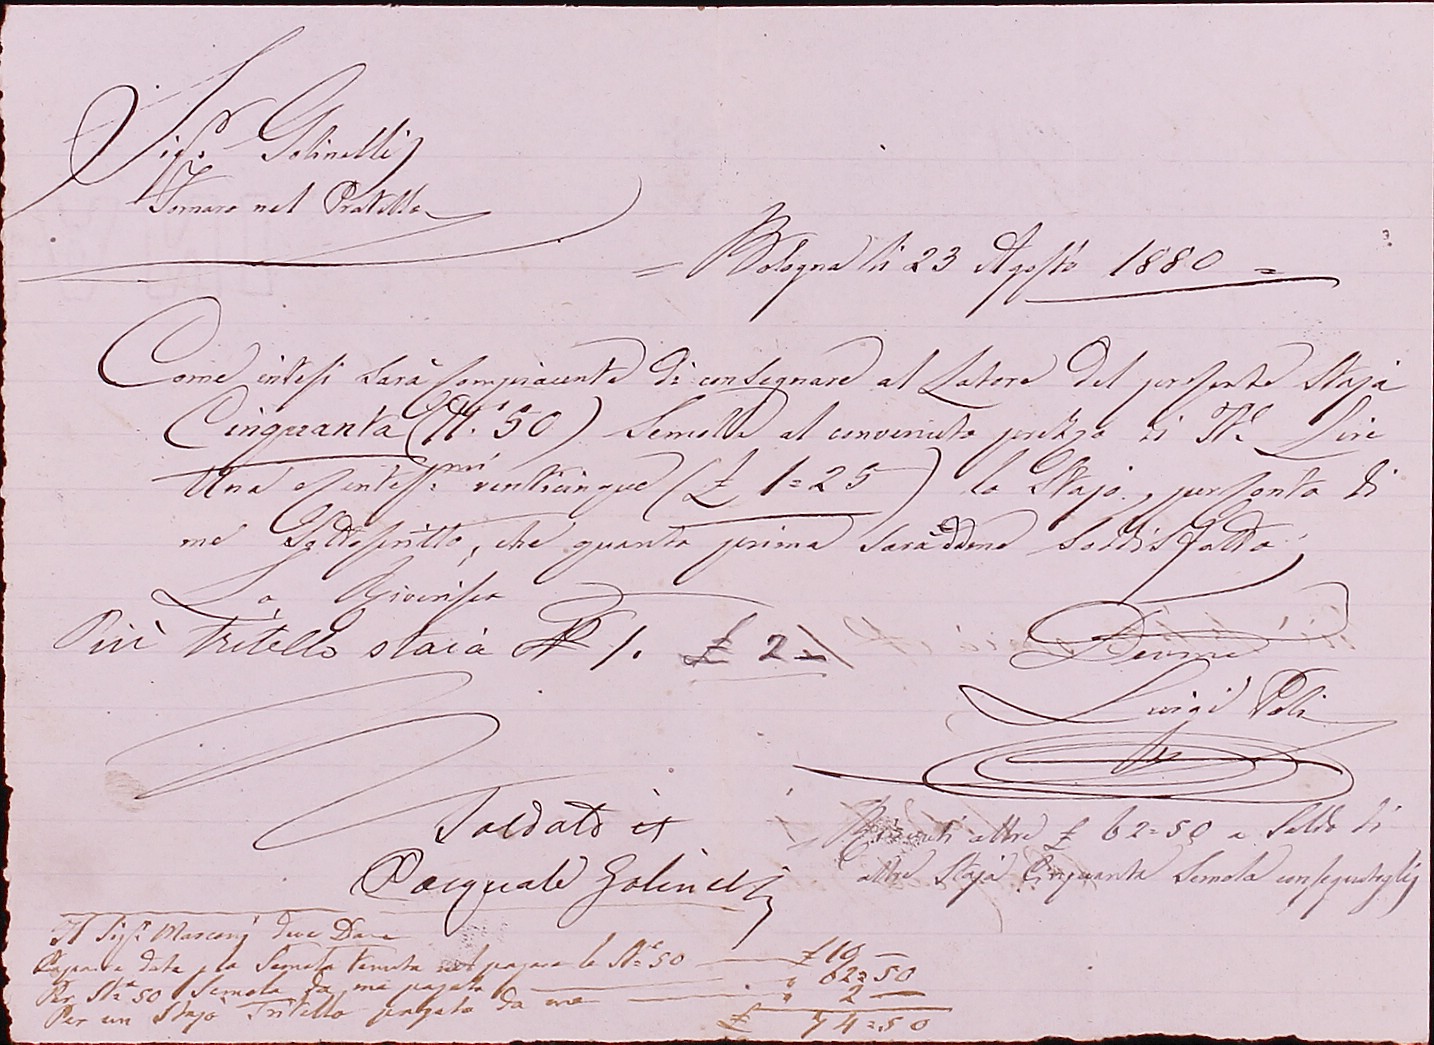 Sig.r Golinelli
Fornaro nel Pratello
= Bologna li 23 Agosto 1880 =
Come intesi sarà compiacente di consegnare al Latore del presente Staja
Cinquanta (N.° 50) Semola al convenuto prezzo di It.e Lire
Una e Centes.mi venticinque (£ 1=25) lo Stajo, per conto di
me Sottoscritto, che quanto prima sarà soddisfatto
La Riverisco
Più Tritello staia N 1. £ 2
Luigi Poli
Saldato
Pasquale Golinelli
Ricevuti altre £ 62=50 a Saldo di
altre Staja Cinquanta Semola consegnategli
Il Sig.r Marconi deve Dare
Caparra data per la Semola le St.a 50 £ 10
Per St.a 50 Semola da me pagate " 62=50
Per un Stajo Tritello pagato da me " 2
£ 74=50